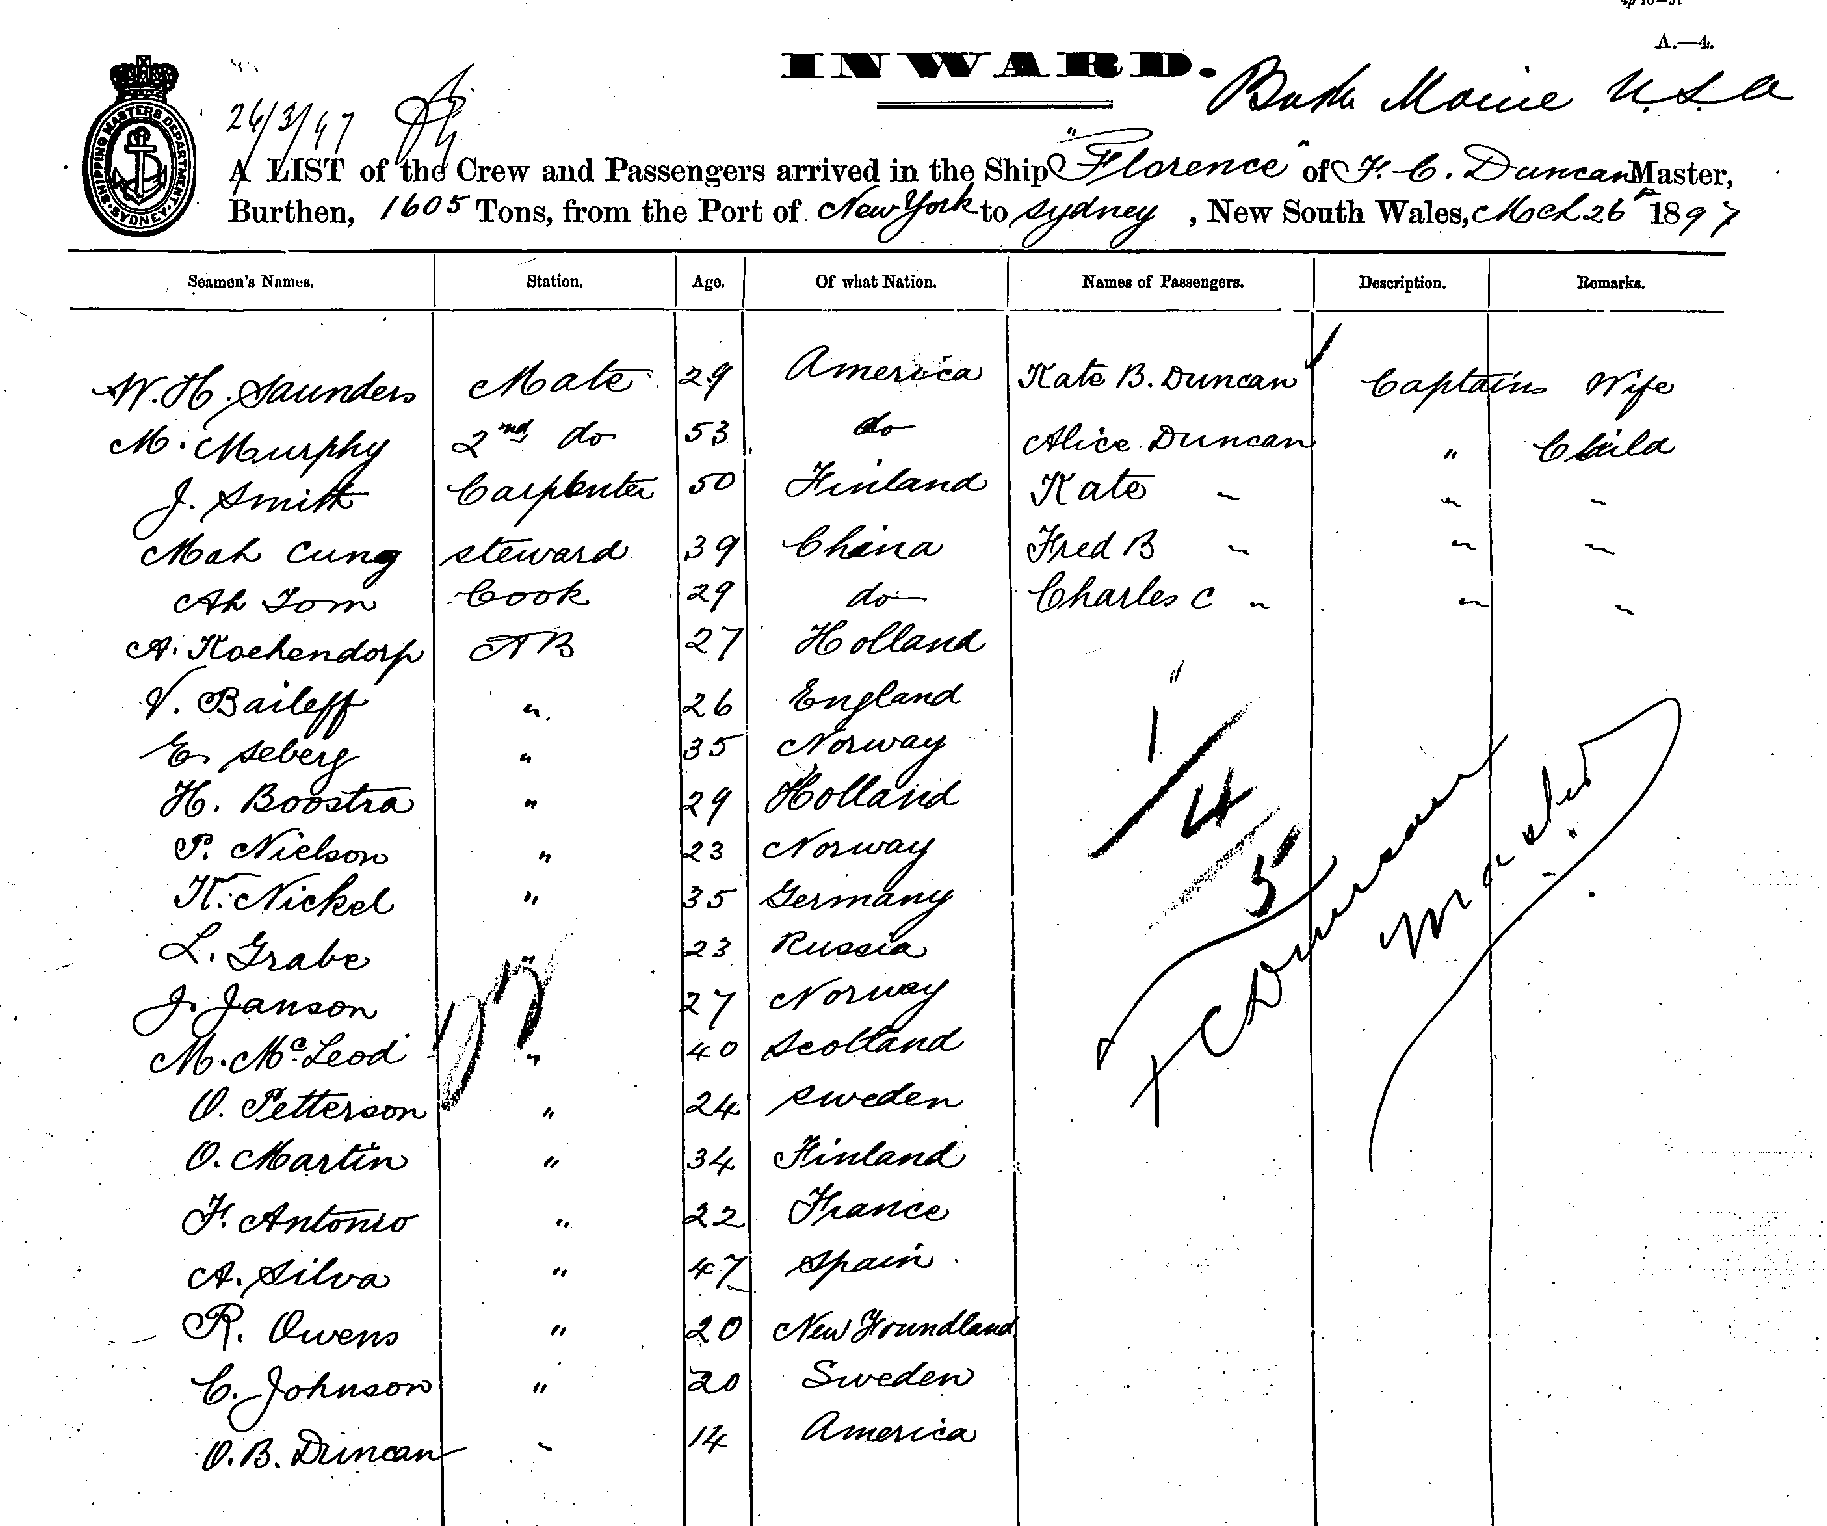 A.—4.
INWARD.
Bath Maine U.S.A
SHIPPING MASTERS DEPARTMENT. SYDNEY.
26/3/97
A LIST of the Crew and Passengers arrived in the Ship "Florence" of F. C. Duncan Master,
Burthen, 1605 Tons, from the Port of New York to Sydney, New South Wales, Mch 26th 1897
Seamen's Names. Station. Age. Of what Nation. Names of Passengers. Description. Remarks.
W. H. Saunders Mate 29 America Kate B. Duncan Captains Wife
M. Murphy 2nd do 53 do Alice Duncan " Child
J. Smith Carpenter 50 Finland Kate " " "
Mah Cung Steward 39 China Fred B " " "
Ah Tom Cook 29 do Charles C " " "
A. Kochendorp AB 27 Holland
V. Baileff " 26 England
E. Seberg " 35 Norway
H. Boostra " 29 Holland
P. Nielson " 23 Norway
K. Nickel " 35 Germany
L. Grabe " 23 Russia
J. Janson 27 Norway
M. McLeod " 40 Scotland
O. Petterson " 24 Sweden
O. Martin " 34 Finland
F. Antonio " 22 France
A. Silva " 47 Spain
R. Owens " 20 New Foundland
C. Johnson " 20 Sweden
O. B. Duncan " 14 America
1/4/5
F C Duncan
Master